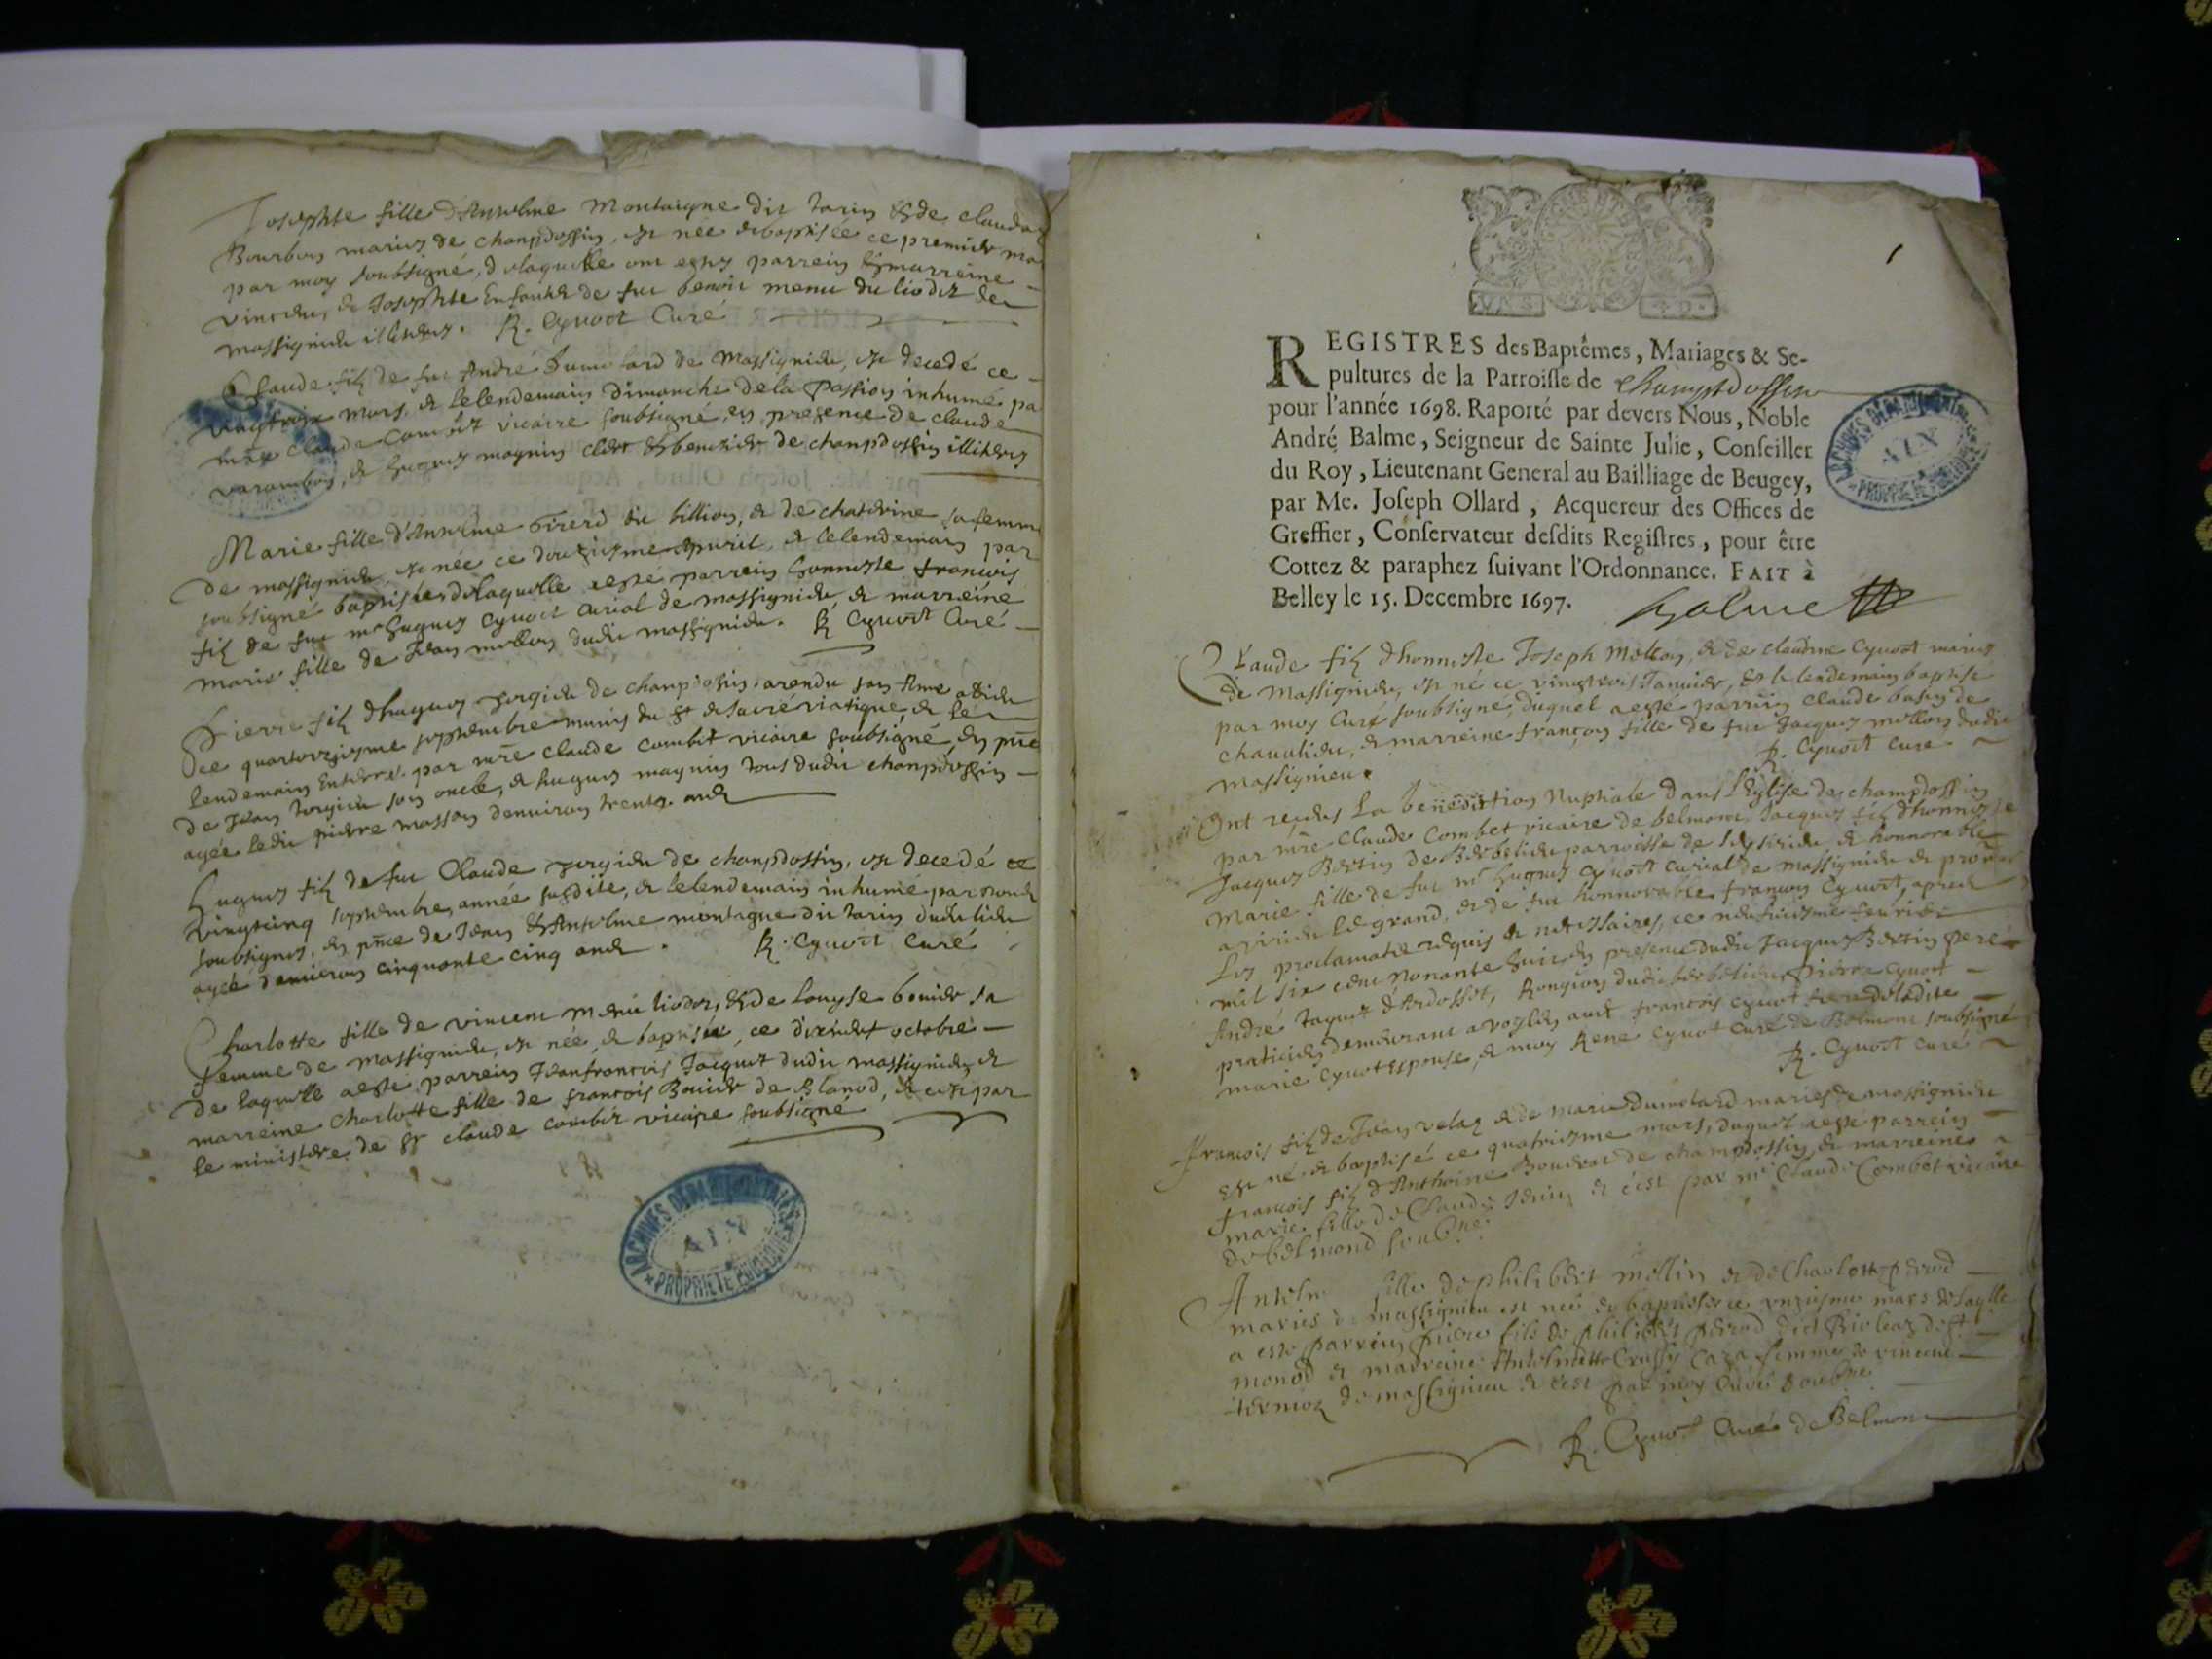 Josephte fille d'Anselme Montaigne dit tarin & de Clauda
Bourbon mariez de champdossin, est née & baptisée ce premier
par moy soubsigné, de laquelle ont estez parrein & marreine
vincent, & Josephte enfants de feu benoit menu du
massignieu illiteres. R. Cyvoct Curé
Claude filz de feu André Dumolard de Massignieu, est decedé ce
vingttrois mars, & lelendemain dimanche dela passion inhumé
Claude Combet vicaire soubsigné, en presence de claude
varambon, & hugues maynin clerc & benezier de champdossin illiteres
Marie fille d'Anselme Birerd dit billion, & de chaterine sa femme
de massignieu, est née ce douziesme apuril, & lelendemain par
soubsigné baptisée, delaquelle aesté parrein honneste francois
filz de feu mr hugues Cyvoct curial de massignieu & marreine
marie fille de Jean mollon dudit massignieu. R Cyvoct Curé
Pierre filz d'hugues de champdossin, arendu son Ame adieu
ce quatorziesme septembre munis du St & sacré viatique, & le
lendemain Enterré par mre Claude combet vicaire soubsigné, en pnce
de Jean son oncle, & hugues maynin tous dudit champdossin
ayée ledit pierre masson denuiron trente ans
Hugues filz de feu Claude de champdossin, est decedé ce
vingtcinq septembre, année susdite, & lelendemain inhumé par nous
soubsignes, en pnce de Jean & Anselme montagne dit tarin dudit lieu
ayé denuiron cinquante cinq ans. R. Cyvoct Curé
Charlotte fille de vincent menu & de Louyse bouvier sa
femme de massignieu, est née, & baptisée, ce dixneuf octobre
de laquelle aesté parrein Jeanfrancois Jacquet dudit massignieu, &
marreine Charlotte fille de francois Bouvier de Blanod, & cest par
le ministere de Sr claude combet vicaire soubsigné
ARCHIVES DEPARTEMENTALES
AIN
PROPRIETE PUBLIQUE
REGISTRES des Baptêmes, Mariages & Se-
pultures de la Parroisse de Champdossin
pour l'année 1698. Raporté par devers Nous, Noble
André Balme, Seigneur de Sainte Julie, Conseiller
du Roy, Lieutenant General au Bailliage de Beugey,
par Me. Joseph Ollard, Acquereur des Offices de
Greffier, Conservateur desdits Registres, pour être
Cottez & paraphez suivant l'Ordonnance. FAIT à
Belley le 15. Decembre 1697. Balme
ARCHIVES DEPARTEMENTALES
AIN
PROPRIETE PUBLIQUE
Claude filz d'honneste Joseph Mollon, & de claudine Cyvoct mariez
de Massignieu, est né ce vingtrois Janvier, & le lendemain baptisé
par moy Curé soubsigné, duquel aesté parrein Claude de
& marreine françoise fille de feu Jacques mollon dudit
massignieu. R. Cyvoct Curé
Ont receus La benediction Nuptiale dans l'Eglise de champdossin
par mre Claude Combet vicaire de belmont, Jacques filz d'honneste
Jacques Bertin de parroisse de & honnorable
Marie fille de feu mr hugues Cyvoct Curial de massignieu &
le grand, & de feu honnorable françois Cyvoct, apres
Les proclamations requis & necessaires, ce neufuiesme feurier
mil six cent nonante huit, en presence dudit Jacques Bertin pere
André Jaquet d'Ardosset, dudit Pierre Cyvoct
praticien demeurant a francois Cyvoct frere deladite
marie Cyvoct Espouse, & moy Rene Cyvoct Curé de Belmont soubsigné
R. Cyvoct Curé
Francois filz de Jean velaz & de marie Dumolard mariez de massignieu
est né, & baptisé ce quatriesme mars, duquel aesté parrein
francois filz d'Anthoine de champdossin, & marreine
marie fille de Claude & c'est par mr Claude Combet vicaire
de belmond soubsné
fille de philibert mollin & de Charlotte perod
mariés de massignieu est née & baptisée ce unziesme mars
a esté parrein pierre fils de philibert perod dict
& marreine Anthelmette femme de vincent
de massignieu & c'est par moy Curé soubsné
R. Cyvoct Curé de Belmont